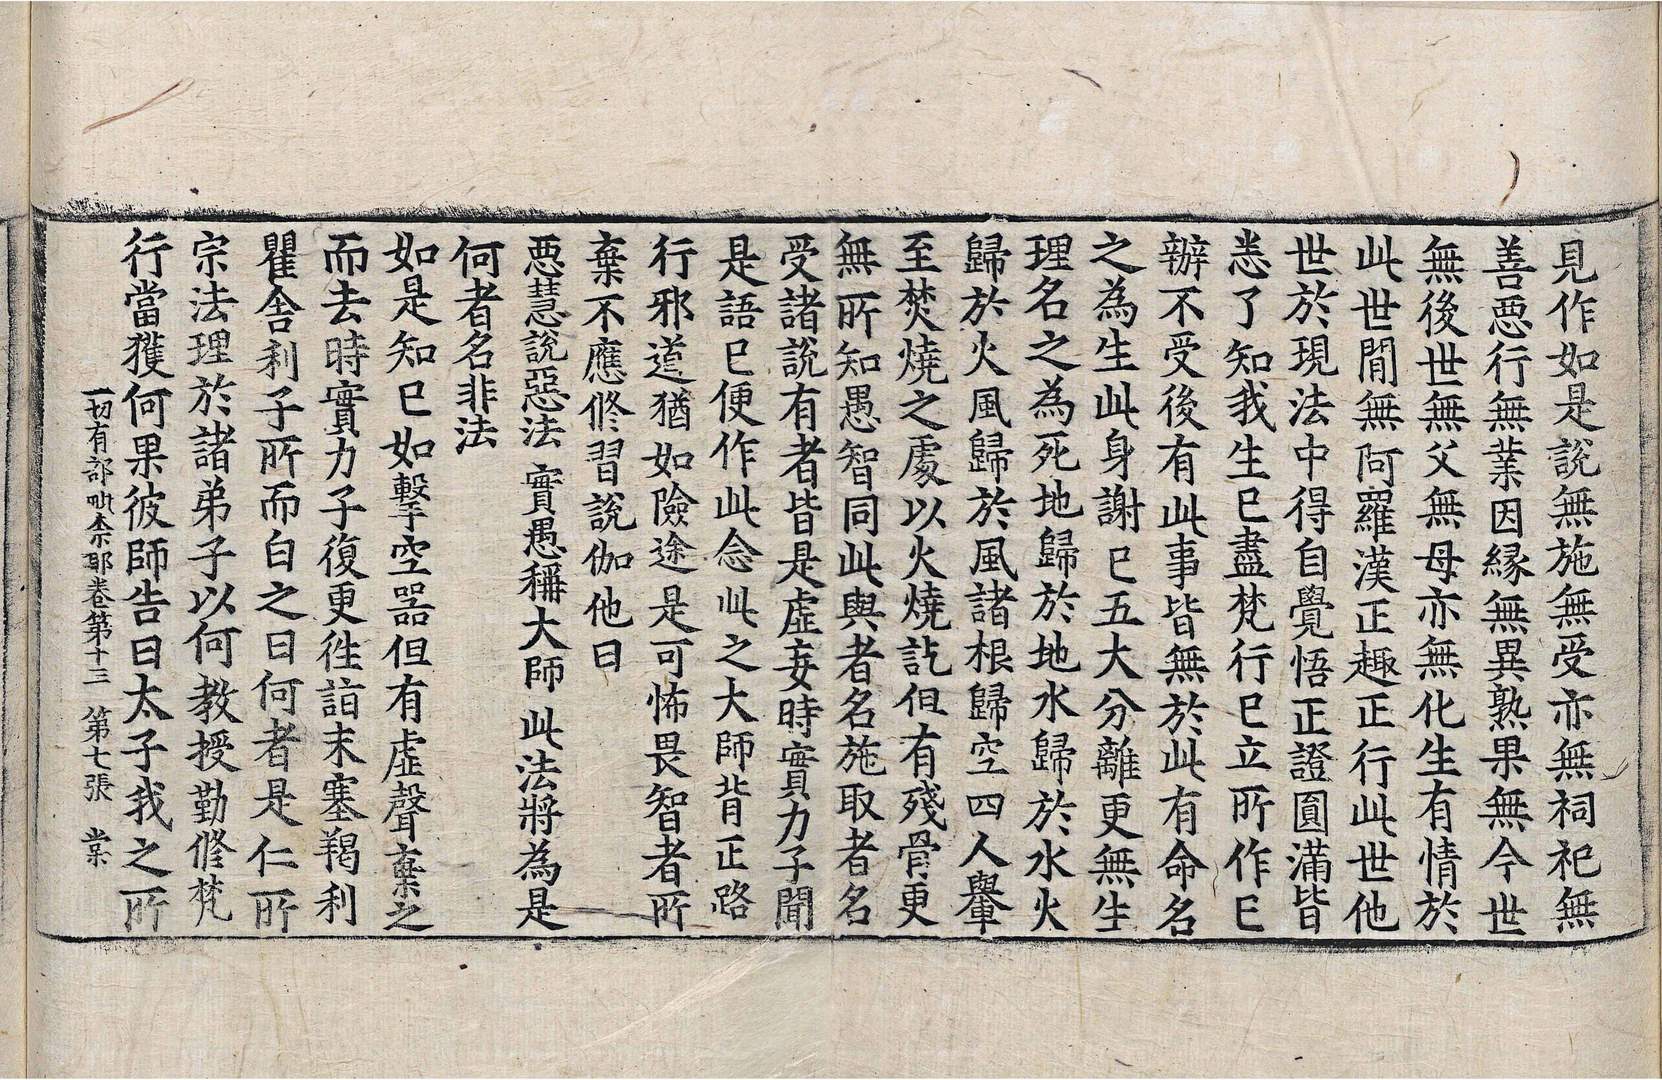 見作如是說無施無受亦無祠祀無
善惡行無業因緣無異熟果無今世
無後世無父無母亦無化生有情於
此世閒無阿羅漢正趣正行此世他
世於現法中得自覺悟正證圓滿皆
悉了知我生已盡梵行已立所作已
辦不受後有此事皆無於此有命名
之為生此身謝已五大分離更無生
理名之為死地歸於地水歸於水火
歸於火風歸於風諸根歸空四人轝
至焚燒之處以火燒訖但有殘骨更
無所知愚智同此與者名施取者名
受諸說有者皆是虛妄時實力子聞
是語已便作此念此之大師背正路
行邪道猶如險途是可怖畏智者所
棄不應修習說伽他曰
惡慧說惡法 實愚稱大師 此法將為是
何者名非法
如是知已如擊空器但有虛聲棄之
而去時實力子復更往詣末塞羯利
瞿舍利子所而白之曰何者是仁所
宗法理於諸弟子以何教授勤修梵
行當獲何果彼師告曰太子我之所
一切有部毗柰耶卷第十三 第七張 棠